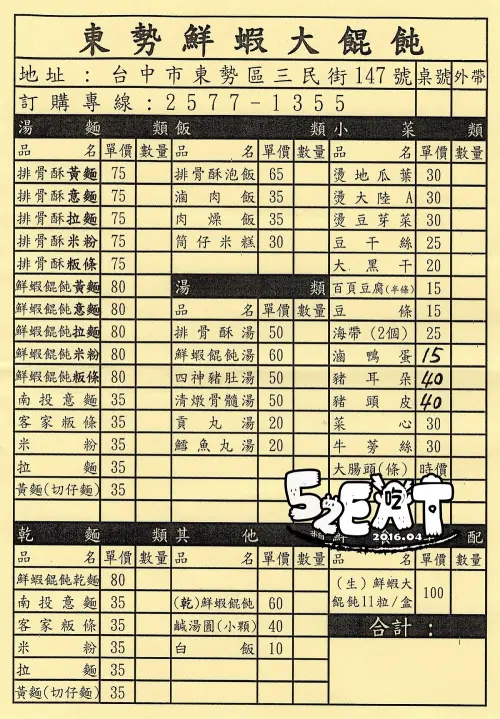 東勢鮮蝦大餛飩
地址：台中市東勢區三民街147號 桌號 外帶
訂購專線：2577-1355
湯麵類
品名 單價 數量
排骨酥黃麵 75
排骨酥意麵 75
排骨酥拉麵 75
排骨酥米粉 75
排骨酥粄條 75
鮮蝦餛飩黃麵 80
鮮蝦餛飩意麵 80
鮮蝦餛飩拉麵 80
鮮蝦餛飩米粉 80
鮮蝦餛飩粄條 80
南投意麵 35
客家粄條 35
米粉 35
拉麵 35
黃麵(切仔麵) 35
乾麵類
品名 單價 數量
鮮蝦餛飩乾麵 80
南投意麵 35
客家粄條 35
米粉 35
拉麵 35
黃麵(切仔麵) 35
飯類
品名 單價 數量
排骨酥泡飯 65
滷肉飯 35
肉燥飯 35
筒仔米糕 30
湯類
品名 單價 數量
排骨酥湯 50
鮮蝦餛飩湯 60
四神豬肚湯 50
清燉骨髓湯 50
貢丸湯 20
鱈魚丸湯 20
其他類
品名 單價 數量
(乾)鮮蝦餛飩 60
鹹湯圓(小顆) 40
白飯 10
小菜類
品名 單價 數量
燙地瓜葉 30
燙大陸A 30
燙豆芽菜 30
豆干絲 25
大黑干 20
百頁豆腐(半條) 15
豆條 15
海帶(2個) 25
滷鴨蛋 15
豬耳朵 40
豬頭皮 40
菜心 30
牛蒡絲 30
大腸頭(條) 時價
52EAT
吃
2016.04
配
品名 單價 數量
(生)鮮蝦大
餛飩11粒/盒 100
合計：